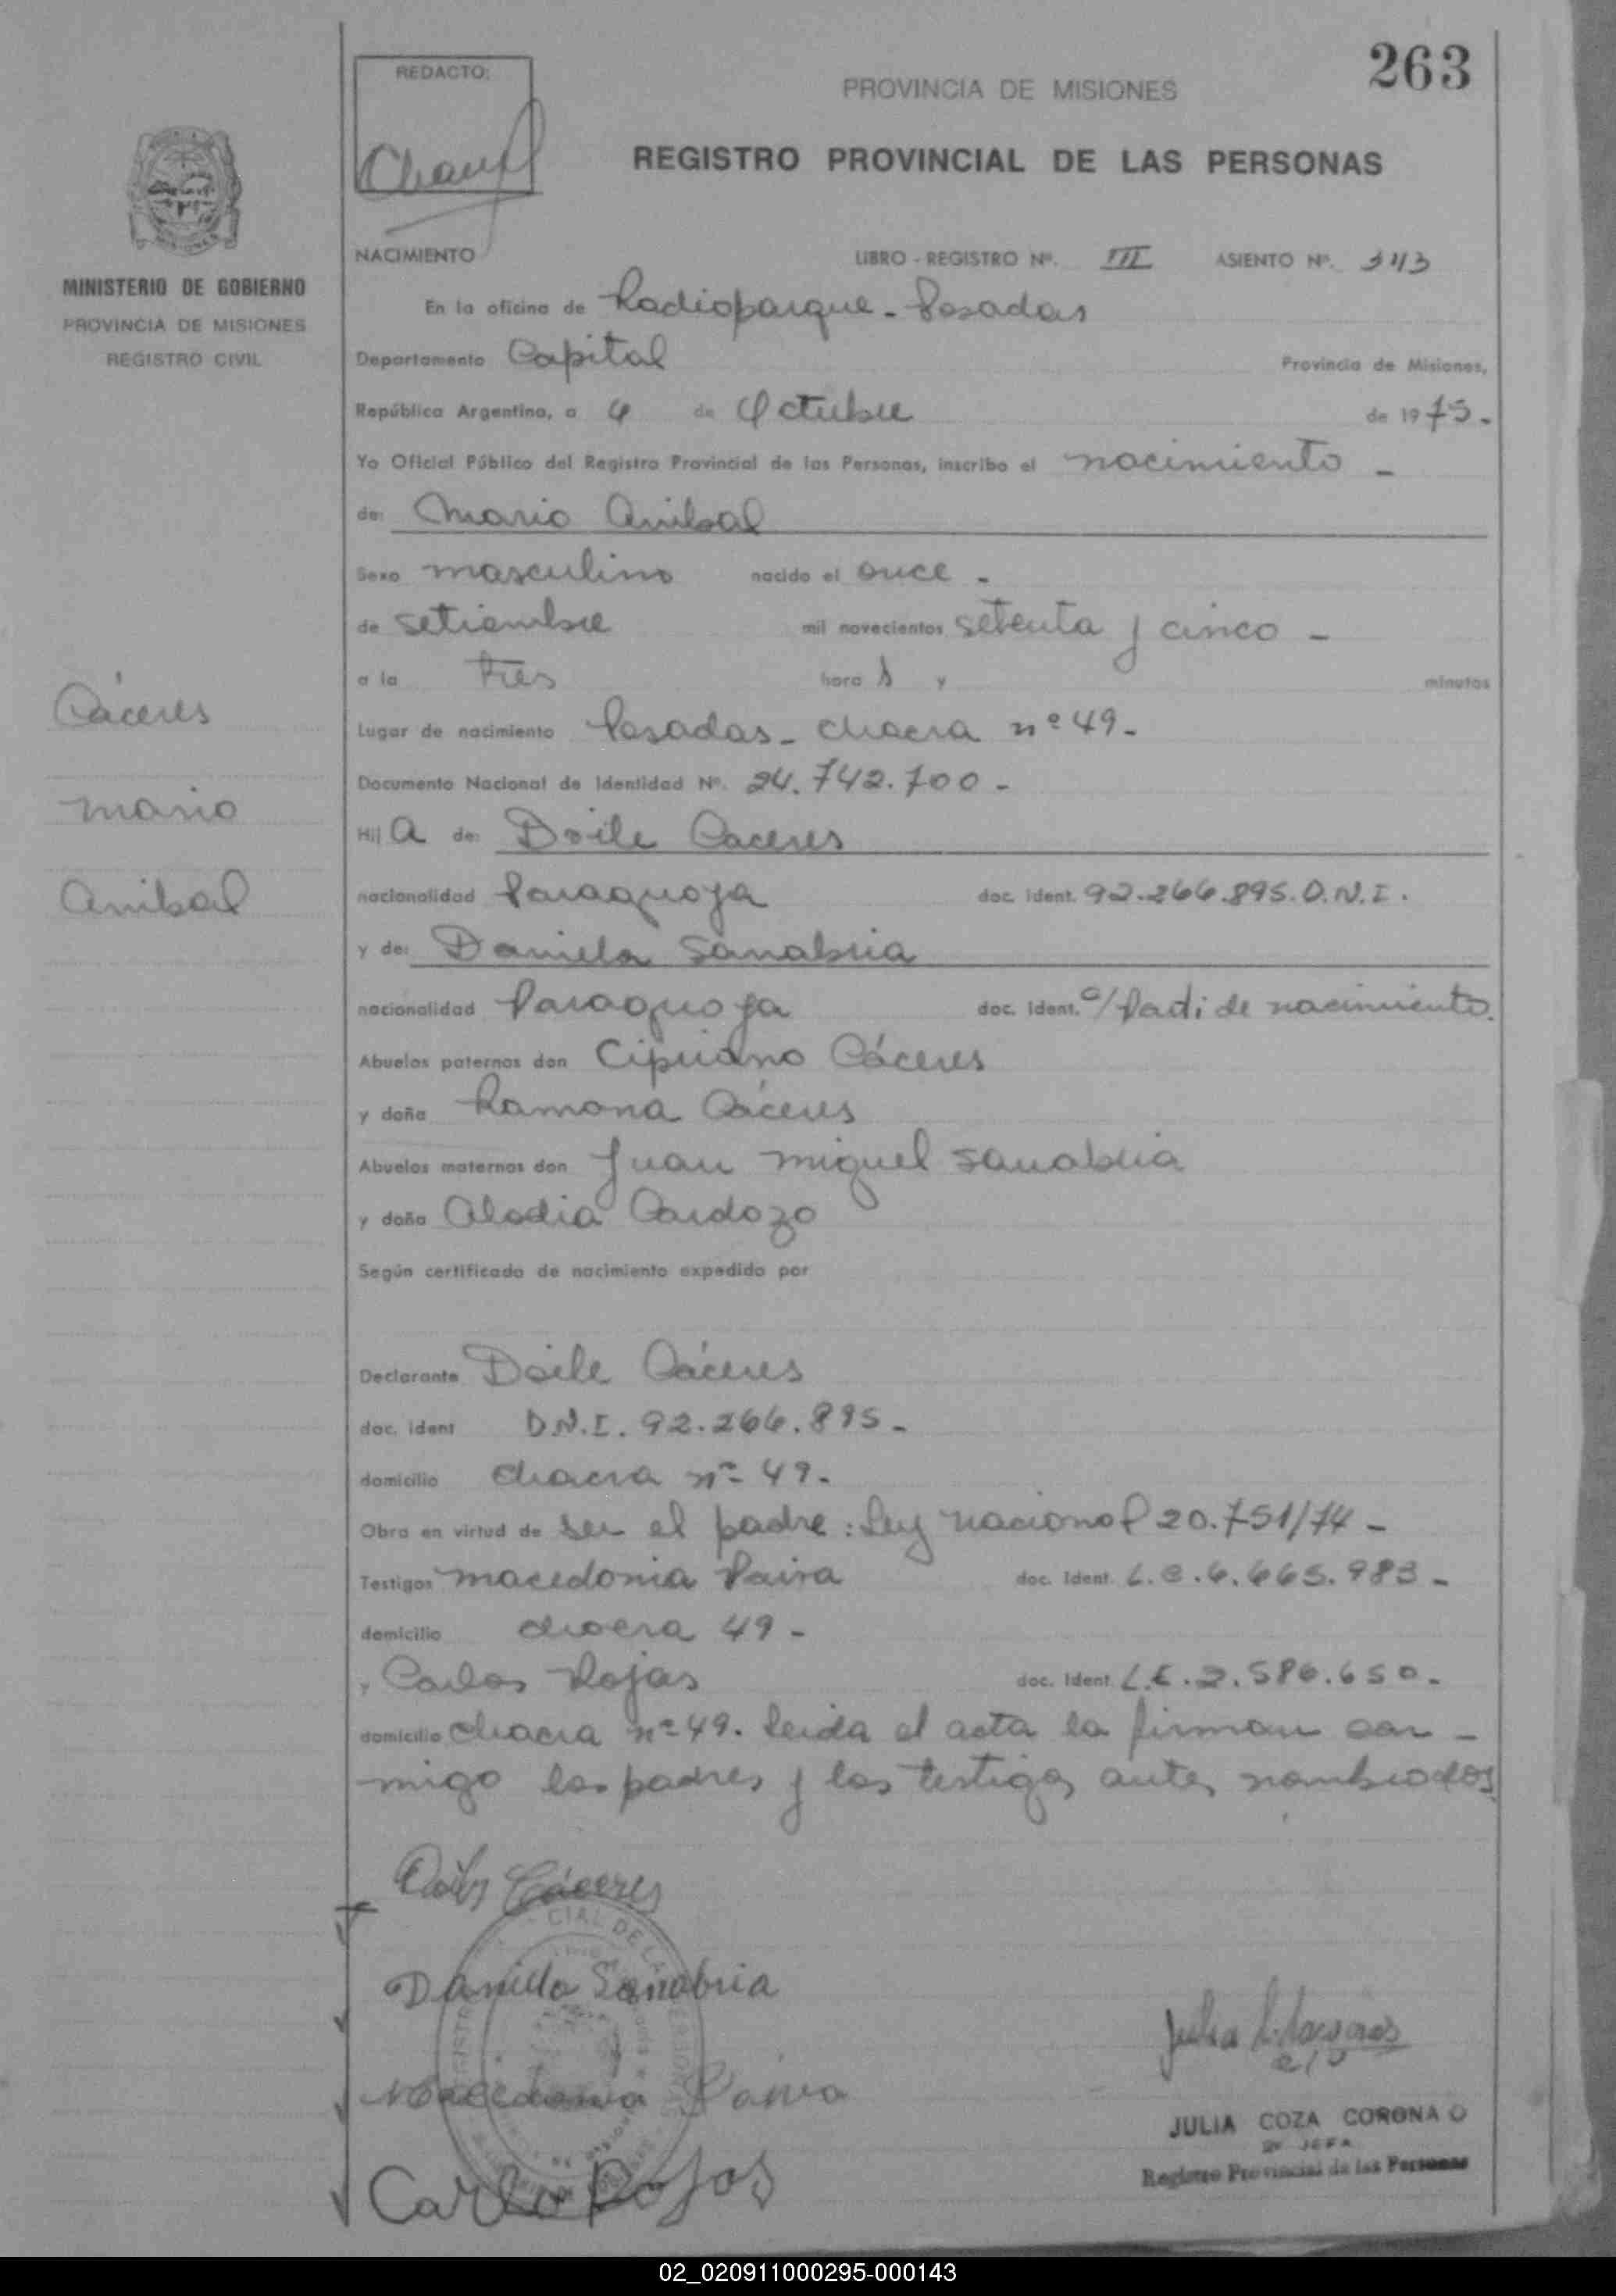 263
REDACTO:
PROVINCIA DE MISIONES
REGISTRO PROVINCIAL DE LAS PERSONAS
MINISTERIO DE GOBIERNO
PROVINCIA DE MISIONES
REGISTRO CIVIL
NACIMIENTO LIBRO - REGISTRO Nº. III ASIENTO Nº. 343
En la oficina de Radioparque - Posadas
Departamento Capital Provincia de Misiones,
República Argentina, a 4 de Octubre de 1975.-
Yo Oficial Público del Registro Provincial de las Personas, inscribo el nacimiento -
de: Mario Anibal
Sexo masculino nacido el once -
de setiembre mil novecientos setenta y cinco -
a la tres hora s y minutos
Cáceres
Lugar de nacimiento Posadas - chacra nº 49 -
Documento Nacional de Identidad Nº. 24.742.700 -
Mario
Hij a de: Doile Caceres
Anibal
nacionalidad Paraguaya doc. ident. 92.266.895. D.N.I.
y de: Daniela Sanabria
nacionalidad Paraguaya doc. ident. c/ Parti de nacimiento.
Abuelos paternos don Cipriano Cáceres
y doña Ramona Cáceres
Abuelos maternos don Juan Miguel Sanabria
y doña Alodia Cardozo
Según certificado de nacimiento expedido por
Declarante Doile Cáceres
doc. ident D.N.I. 92.266.895 -
domicilio chacra nº 49 -
Obra en virtud de ser el padre: Ley nacional 20.751/74 -
Testigos Macedonia Paiva doc. Ident. L.C. 6.665.983 -
domicilio chacra 49 -
y Carlos Rojas doc. Ident. L.E. 2.586.650 -
domicilio chacra nº 49. leida el acta la firman con -
migo los padres y los testigos antes nombrados
Cáceres
CIAL DE L
Daniela Sanabria
Macedonia Paiva
JULIA COZA CORONA
2º JEFA
Registro Provincial de las Personas
Carlo Rojas
02_020911000295-000143